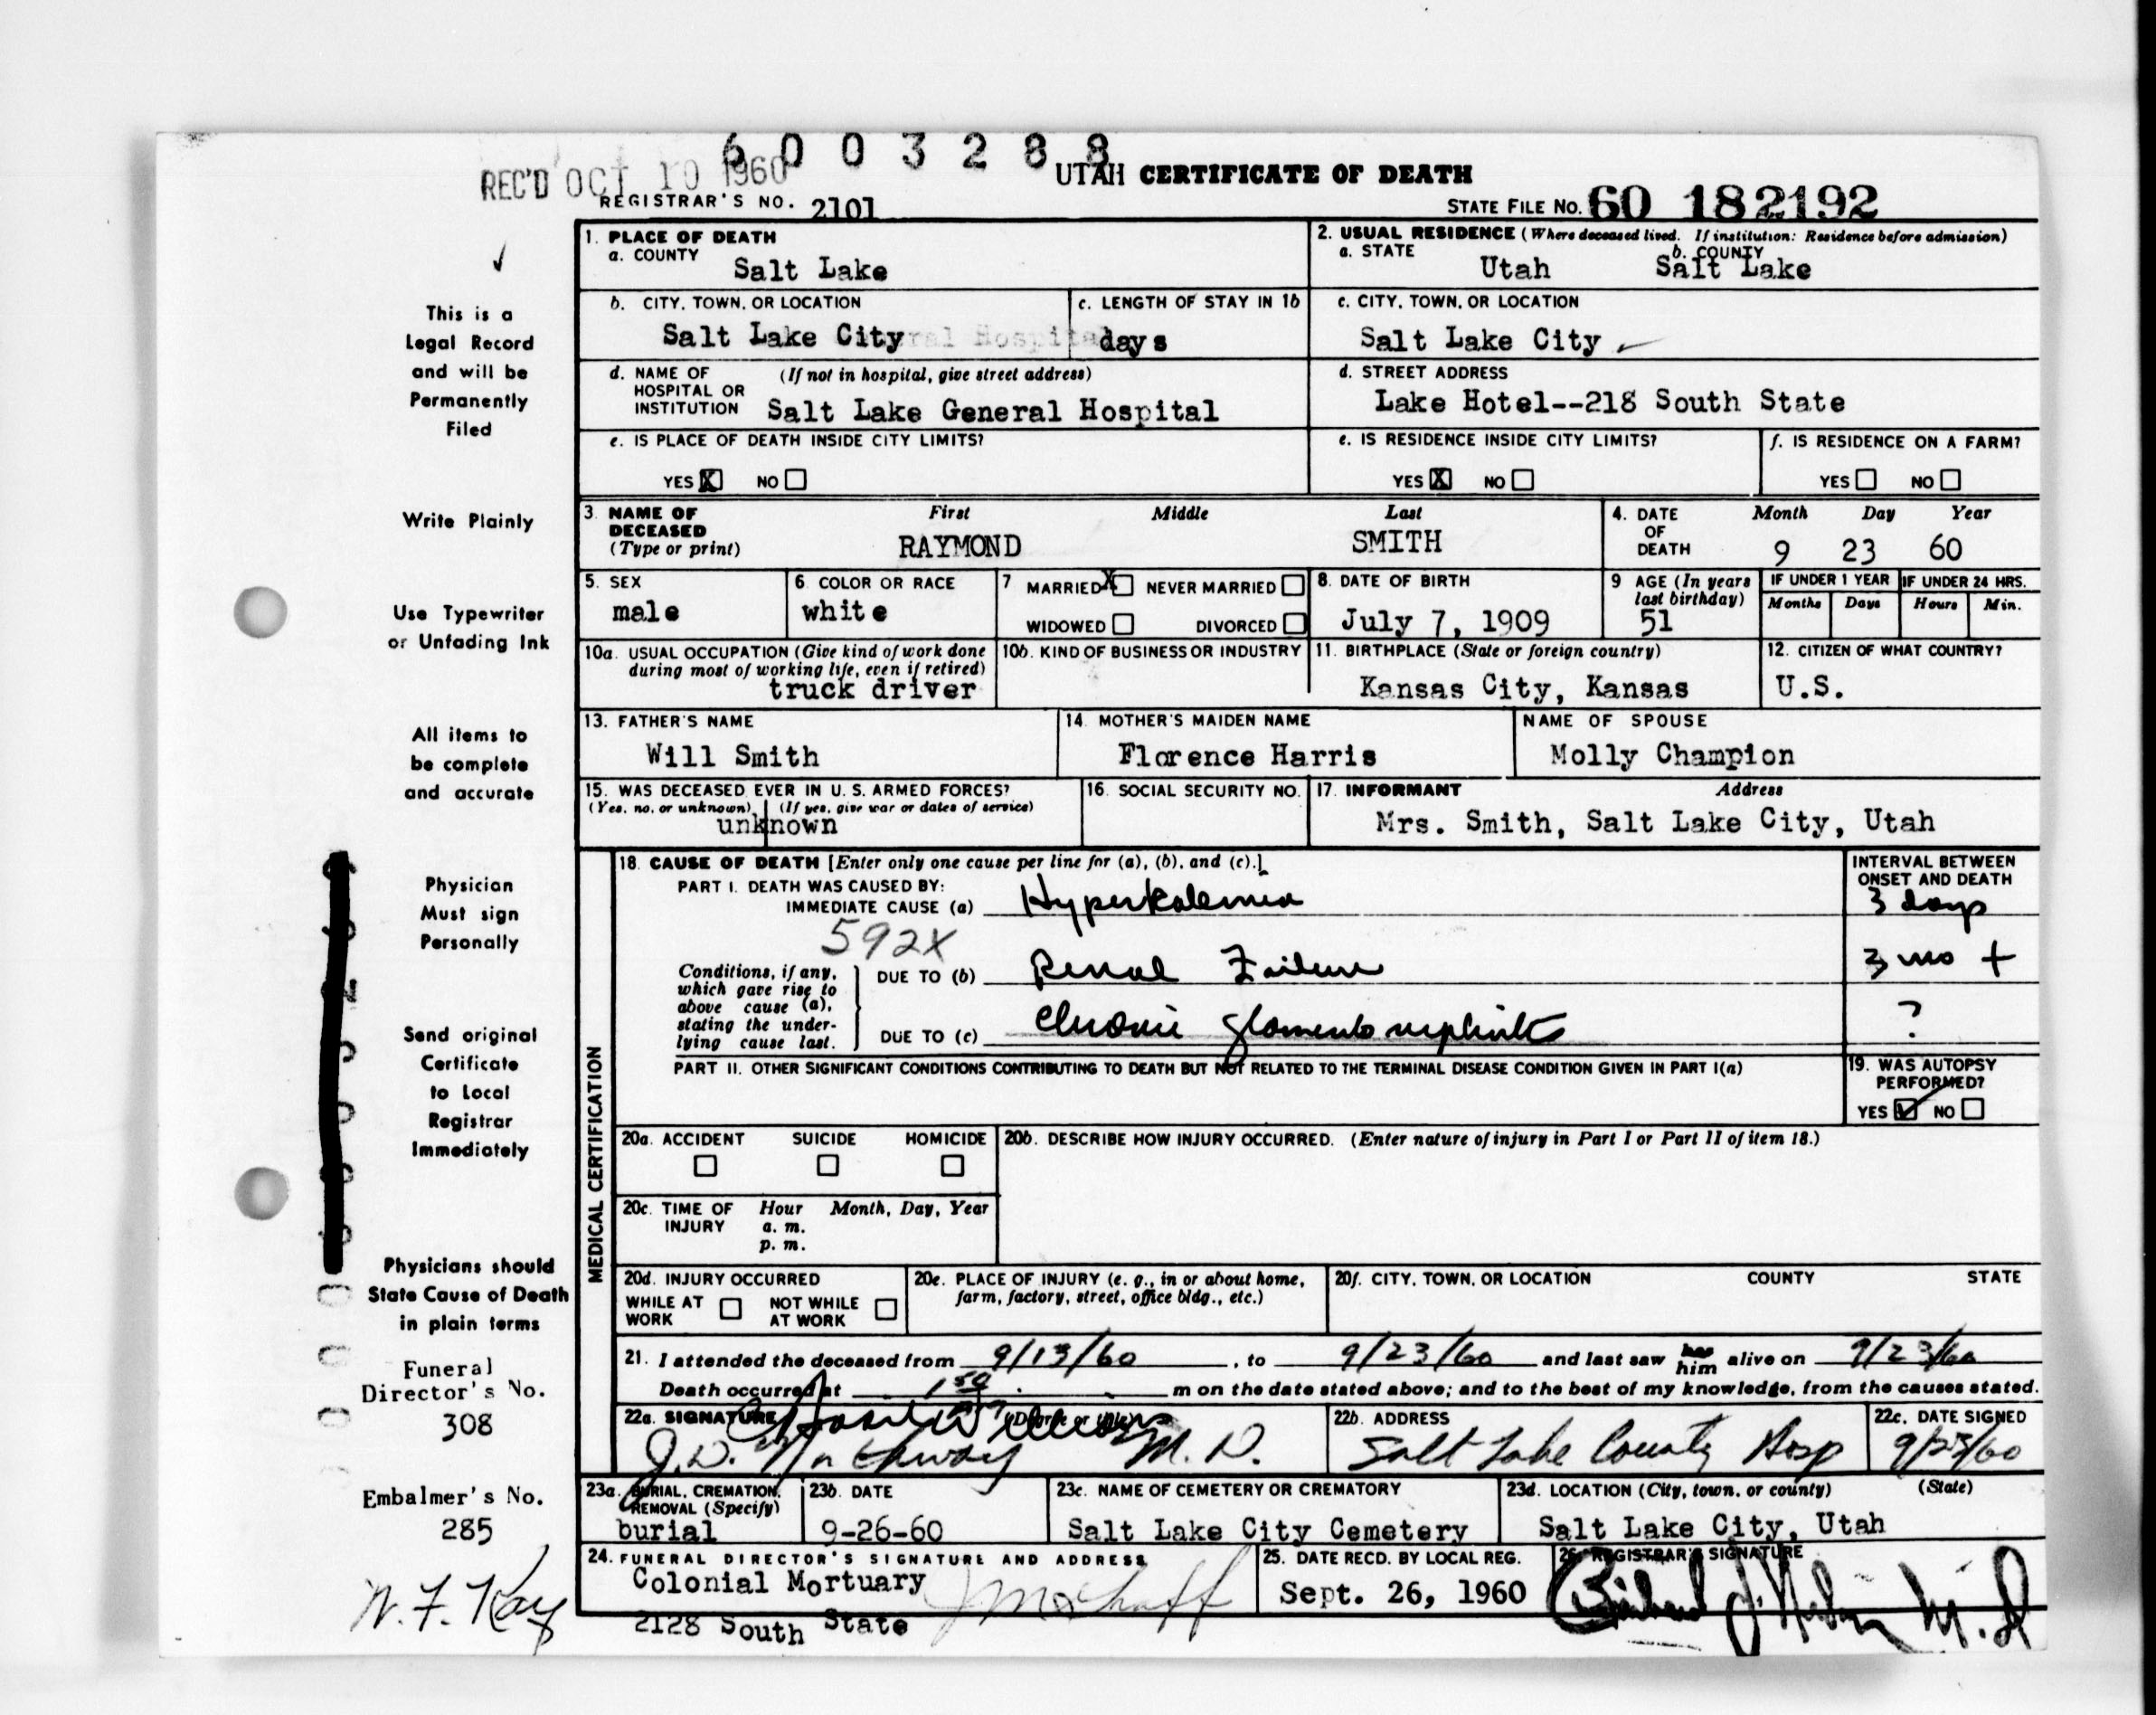 6003288
REC'D OCT 10 1960
UTAH CERTIFICATE OF DEATH
REGISTRAR'S NO. 2101
STATE FILE NO. 60 182192
1. PLACE OF DEATH
a. COUNTY
Salt Lake
2. USUAL RESIDENCE (Where deceased lived. If institution: Residence before admission)
a. STATE
b. COUNTY
Utah
Salt Lake
b. CITY, TOWN, OR LOCATION
Salt Lake City
c. LENGTH OF STAY IN 1b
days
c. CITY, TOWN, OR LOCATION
Salt Lake City
d. NAME OF HOSPITAL OR INSTITUTION
(If not in hospital, give street address)
Salt Lake General Hospital
d. STREET ADDRESS
Lake Hotel--218 South State
e. IS PLACE OF DEATH INSIDE CITY LIMITS?
YES X NO
e. IS RESIDENCE INSIDE CITY LIMITS?
YES X NO
f. IS RESIDENCE ON A FARM?
YES NO
3. NAME OF DECEASED (Type or print)
First Middle Last
RAYMOND SMITH
4. DATE OF DEATH
Month Day Year
9 23 60
5. SEX
male
6. COLOR OR RACE
white
7 MARRIED X NEVER MARRIED
WIDOWED DIVORCED
8. DATE OF BIRTH
July 7, 1909
9 AGE (In years last birthday)
51
IF UNDER 1 YEAR
Months Days
IF UNDER 24 HRS.
Hours Min.
10a. USUAL OCCUPATION (Give kind of work done during most of working life, even if retired)
truck driver
10b. KIND OF BUSINESS OR INDUSTRY
11. BIRTHPLACE (State or foreign country)
Kansas City, Kansas
12. CITIZEN OF WHAT COUNTRY?
U.S.
13. FATHER'S NAME
Will Smith
14. MOTHER'S MAIDEN NAME
Florence Harris
NAME OF SPOUSE
Molly Champion
15. WAS DECEASED EVER IN U. S. ARMED FORCES?
(Yes, no, or unknown) (If yes, give war or dates of service)
unknown
16. SOCIAL SECURITY NO.
17. INFORMANT Address
Mrs. Smith, Salt Lake City, Utah
MEDICAL CERTIFICATION
18. CAUSE OF DEATH [Enter only one cause per line for (a), (b), and (c).]
PART I. DEATH WAS CAUSED BY:
IMMEDIATE CAUSE (a) Hyperkalemia
592X
Conditions, if any, which gave rise to above cause (a), stating the underlying cause last.
DUE TO (b) Renal Failure
DUE TO (c) chronic glomerulonephritis
INTERVAL BETWEEN ONSET AND DEATH
3 days
3 mo +
?
PART II. OTHER SIGNIFICANT CONDITIONS CONTRIBUTING TO DEATH BUT NOT RELATED TO THE TERMINAL DISEASE CONDITION GIVEN IN PART I(a)
19. WAS AUTOPSY PERFORMED?
YES ✓ NO
20a. ACCIDENT SUICIDE HOMICIDE
20b. DESCRIBE HOW INJURY OCCURRED. (Enter nature of injury in Part I or Part II of item 18.)
20c. TIME OF INJURY
Hour Month, Day, Year
a. m.
p. m.
20d. INJURY OCCURRED
WHILE AT WORK NOT WHILE AT WORK
20e. PLACE OF INJURY (e. g., in or about home, farm, factory, street, office bldg., etc.)
20f. CITY, TOWN, OR LOCATION COUNTY STATE
21. I attended the deceased from 9/13/60, to 9/23/60 and last saw him alive on 9/23/60
Death occurred at 1 50 m on the date stated above; and to the best of my knowledge, from the causes stated.
22a. SIGNATURE (Degree or title)
J.D. M.D.
22b. ADDRESS
Salt Lake County Hosp
22c. DATE SIGNED
9/23/60
23a. BURIAL, CREMATION, REMOVAL (Specify)
burial
23b. DATE
9-26-60
23c. NAME OF CEMETERY OR CREMATORY
Salt Lake City Cemetery
23d. LOCATION (City, town, or county) (State)
Salt Lake City, Utah
24. FUNERAL DIRECTOR'S SIGNATURE AND ADDRESS
Colonial Mortuary
2128 South State
25. DATE RECD. BY LOCAL REG.
Sept. 26, 1960
26. REGISTRAR'S SIGNATURE
M.D
This is a
Legal Record
and will be
Permanently
Filed
Write Plainly
Use Typewriter
or Unfading Ink
All items to
be complete
and accurate
Physician
Must sign
Personally
Send original
Certificate
to Local
Registrar
Immediately
Physicians should
State Cause of Death
in plain terms
Funeral
Director's No.
308
Embalmer's No.
285
W. F. Kay